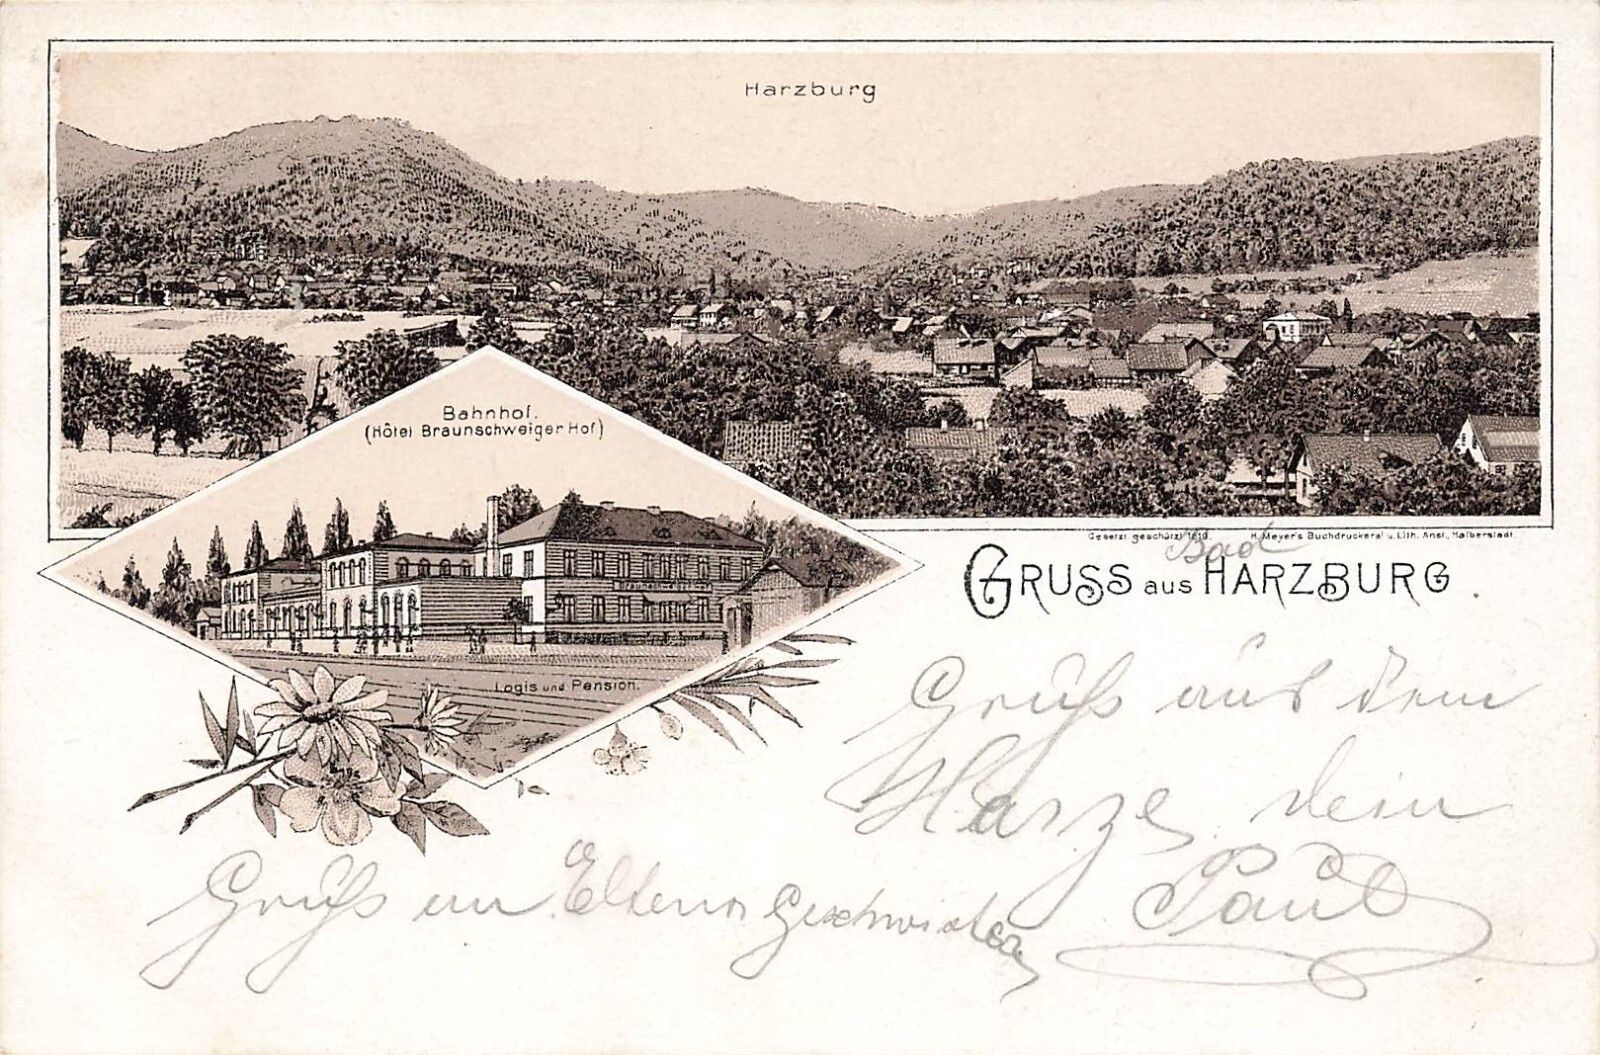 Harzburg
Bahnhof.
(Hôtel Braunschweiger Hof)
Logis und Pension.
Gesetzl geschützt 1619. H. Meyer's Buchdruckerei u. Lith. Anst., Halberstadt.
Bad
GRUSS aus HARZBURG.
Gruß aus dem
Harze dein
Paul
Gruß an Eltern Geschwister